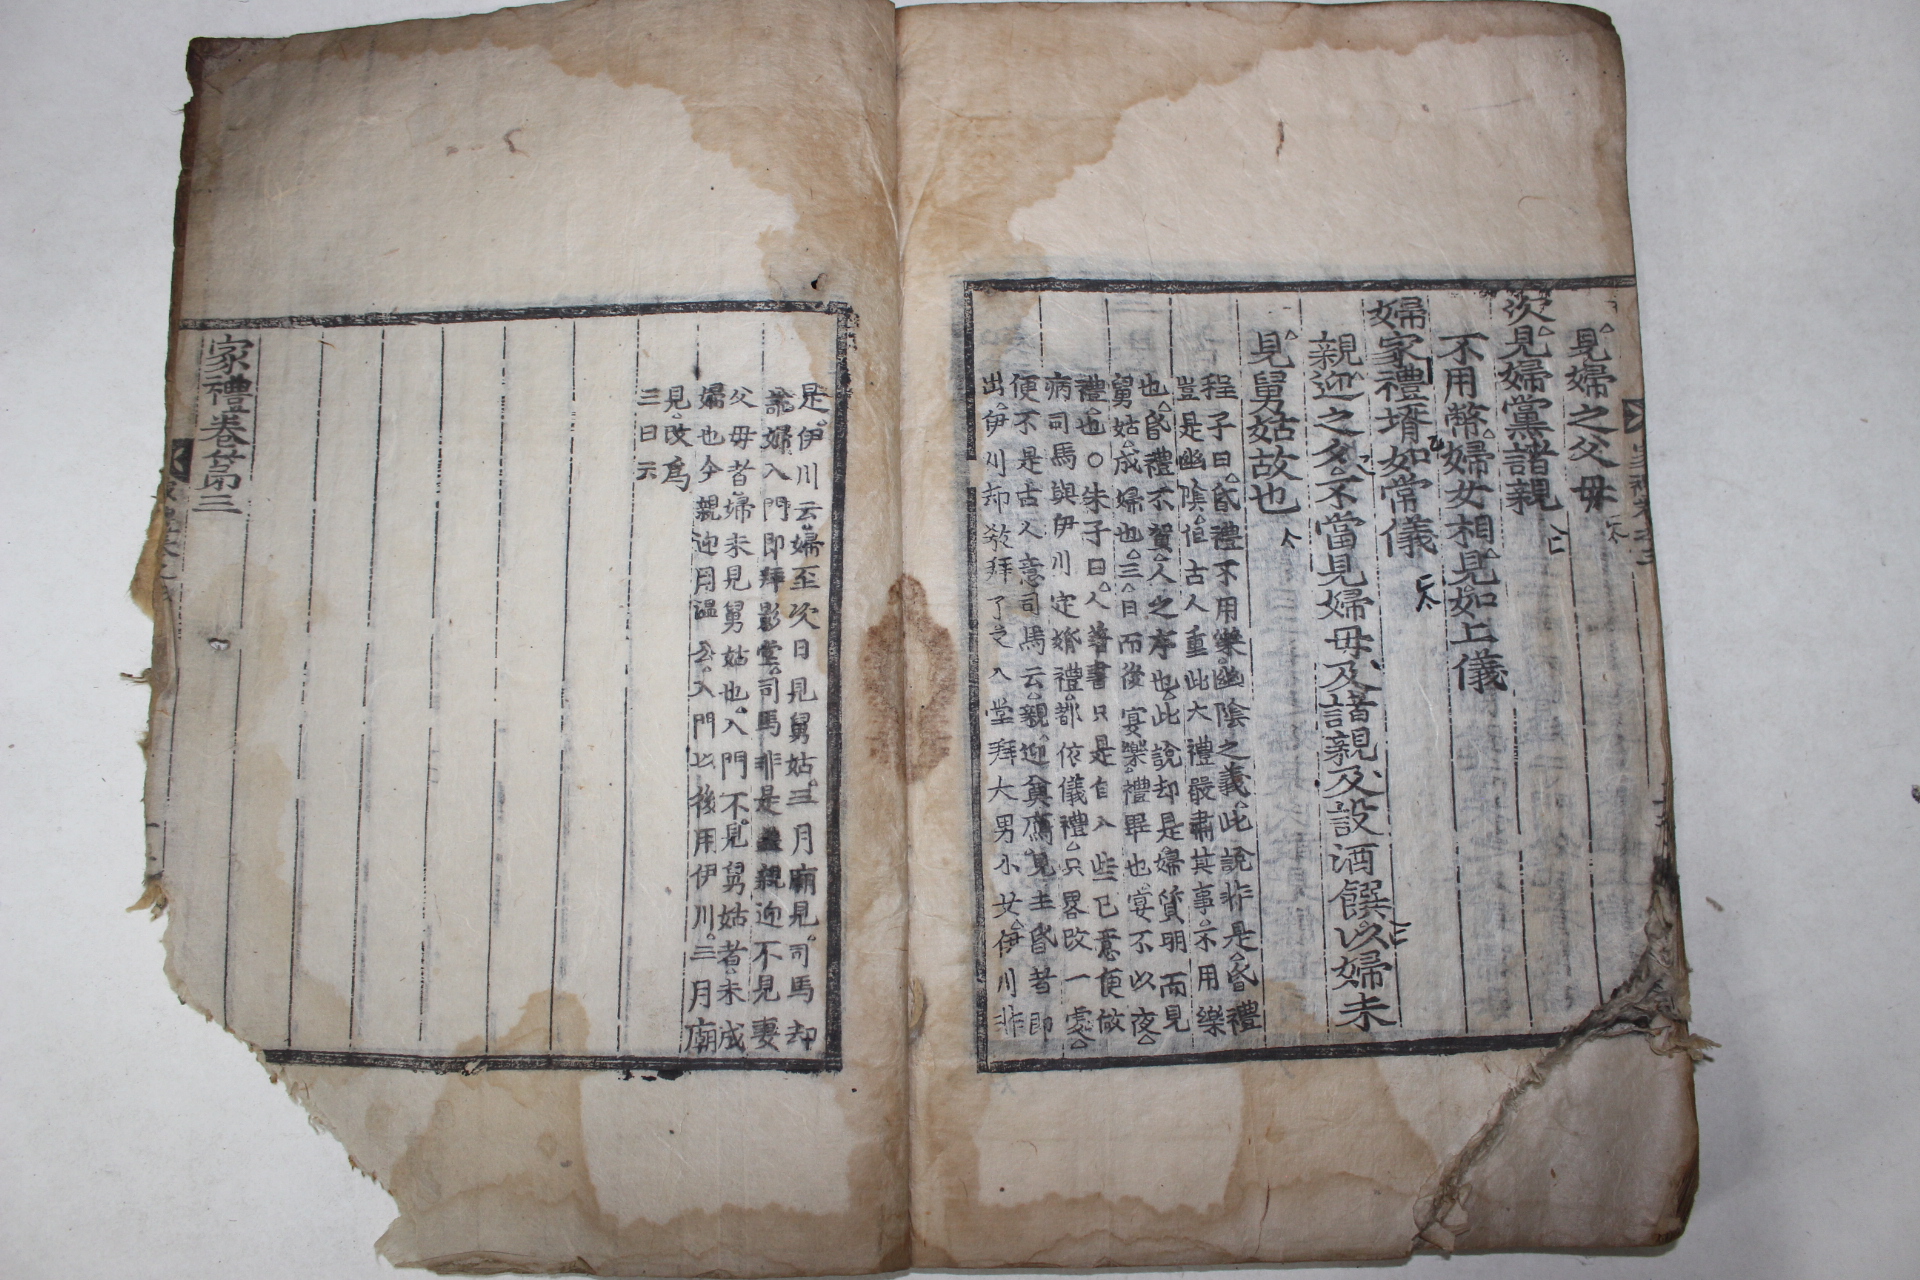 見婦之父母
次見婦黨諸親
不用幣婦女相見如上儀
婦家禮壻如常儀
親迎之夕不當見婦母及諸親及設酒饌以婦未
見舅姑故也
程子曰昏禮不用樂幽陰之義此說非是昏禮
豈是幽陰但古人重此大禮嚴肅其事不用樂
也昏禮不賀人之序也此說却是婦質明而見
舅姑成婦也三日而後宴樂禮畢也宴不以夜
禮也○朱子曰人著書只是自入些已意便做
病司馬與伊川定婚禮都依儀禮只畧改一處
便不是古人意司馬云親迎奠鴈見主昏者即
出伊川却教拜了又入堂拜大男小女伊川非
是伊川云婦至次日見舅姑三月廟見司馬却
說婦入門即拜影堂司馬非是盖親迎不見妻
父母者婦未見舅姑也入門不見舅姑者未成
婦也今親迎用溫公入門以後用伊川三月廟
見改爲
三日云
家禮卷第三